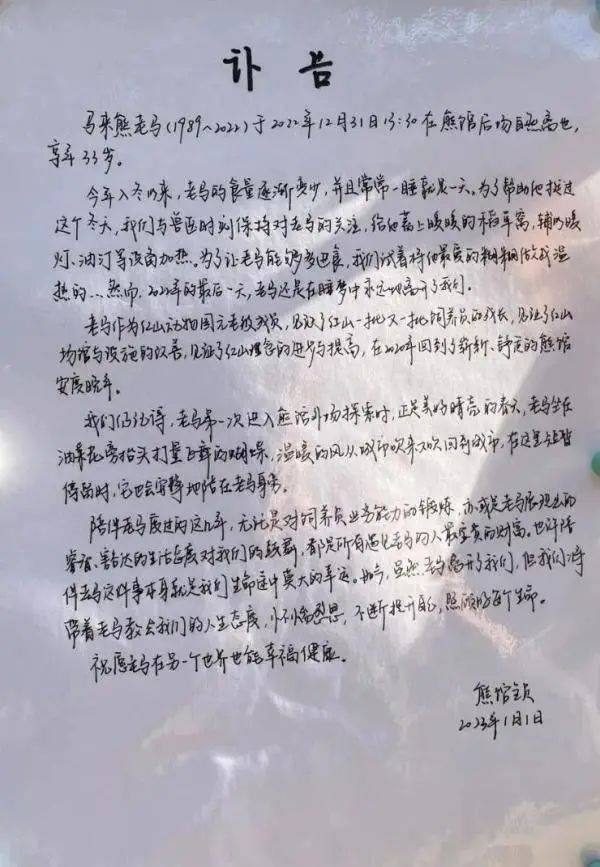 讣告
马来熊老马(1989~2022)于2022年12月31日13:30在熊馆后场自然离世,
享年33岁。
今年入冬以来,老马的食量逐渐变少,并且常常一睡就是一天。为了帮助他挺过
这个冬天,我们与兽医时刻保持对老马的关注,给他盖上暖暖的稻草窝,辅以暖
灯、油汀等设备加热。为了让老马能够多进食,我们试着将他最爱的粥糊做成温
热的...然而,2022年的最后一天,老马还是在睡梦中永远地离开了我们。
老马作为红山动物园元老级成员,见证了红山一批又一批饲养员的成长,见证了红山
场馆与设施的改善,见证了红山理念的进步与提高,在2020年回到了崭新、舒适的熊馆
安度晚年。
我们仍记得,老马第一次进入熊馆外场探索时,正是美好晴亮的春天,老马坐在
油菜花旁抬头打量飞舞的蝴蝶,温暖的风从城市吹来又吹回到城市,在这里短暂
停留时,它也会安静地陪在老马身旁。
陪伴老马度过的这几年,无论是对饲养员业务能力的锻炼,亦或是老马展现出的
睿智、豁达的生活态度对我们的鼓舞,都是所有遇见老马的人最宝贵的财富。也许陪
伴老马这件事本身就是我们生命途中莫大的幸运。如今,虽然老马离开了我们,但我们将
带着老马教会我们的人生态度,怀揣恩思,不断提升自己,照顾好每个生命。
祝愿老马在另一个世界也能幸福健康。
熊馆全员
2023年1月1日